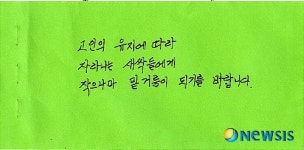 고인의 유지에 따라
자라나는 새싹들에게
작으나마 밑거름이 되기를 바랍니다.
NEWSIS